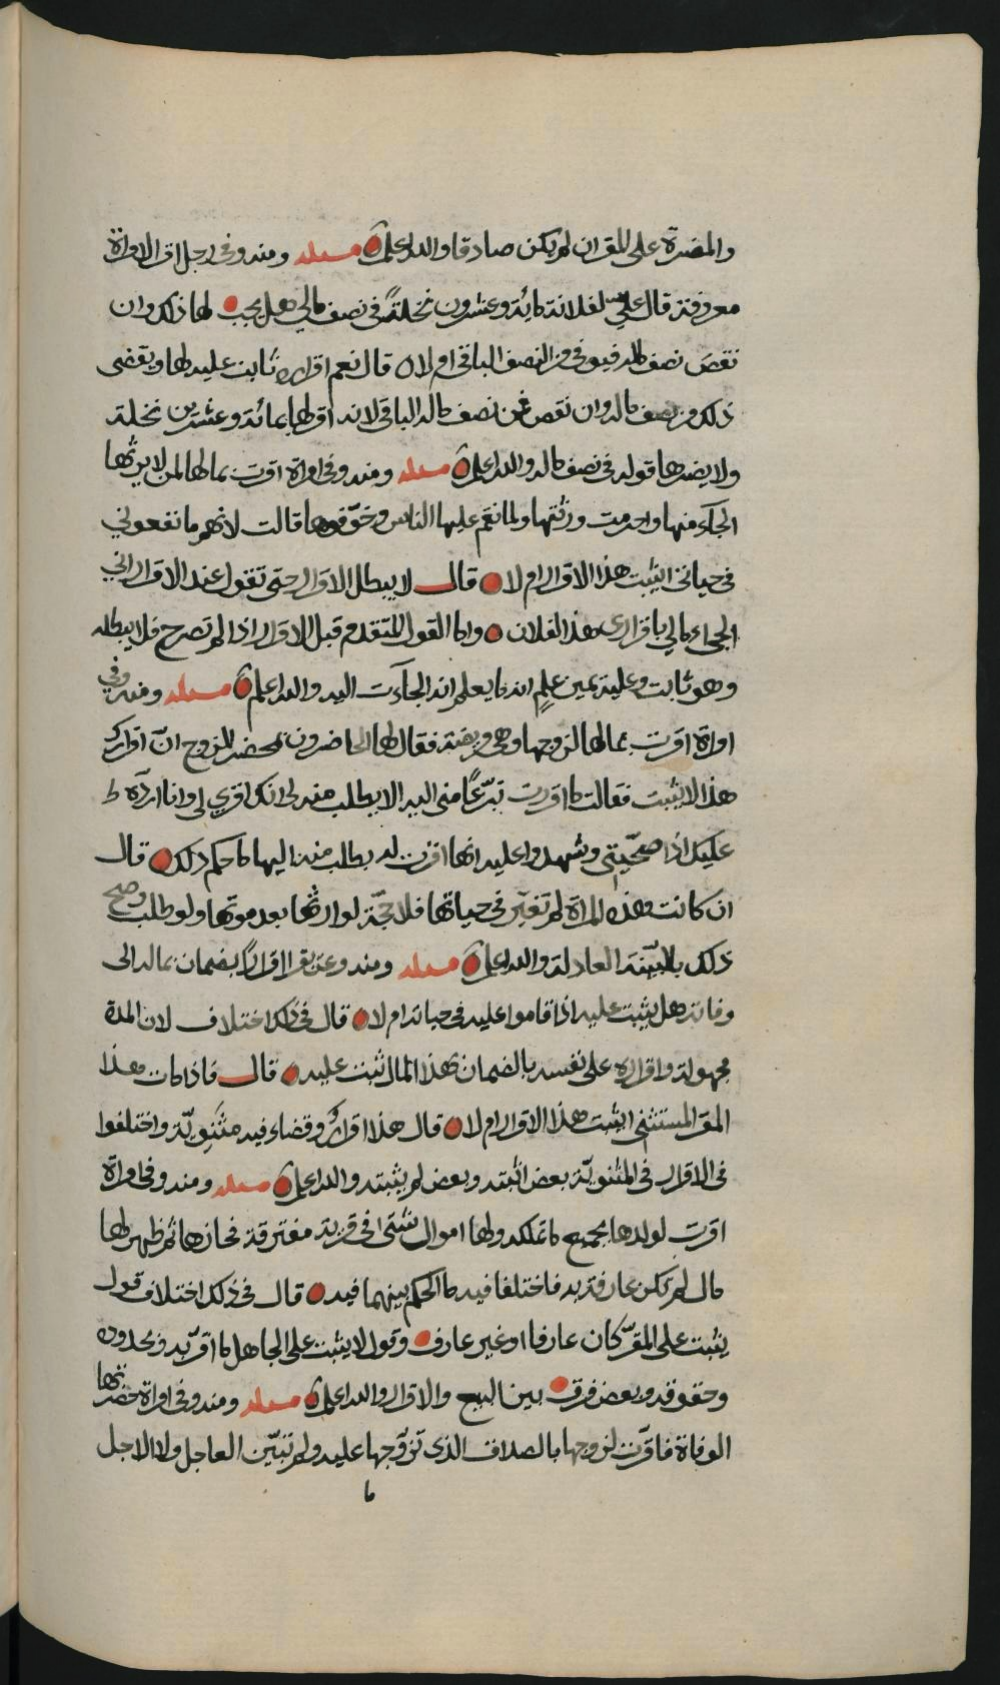 والمضرة على المقر ان لم يكن صادقا والله اعلم مسئلة ومنه وفي رجل اقر لامراة
معروفة قال علي لفلانة مائة وعشرون نخلة في نصف مالي هل يجب لها ذلك وان
نقص نصف ماله فيوفي من النصف الباقي ام لا قال نعم اقراره ثابت عليه لها ويقضى
ذلك من نصف ماله وان نقص فمن نصف ماله الباقي لانه اقر لها بمائة وعشرين نخلة
ولا يضرها قوله في نصف ماله والله اعلم مسئلة ومنه وفي امراة اقرت بمالها لمن لا يرثها
الجاء منها واحرمت ورثتها ولما نقم عليها الناس وخوفوها قالت لانهم ما نفعوني
في حياتي ايثبت هذا الاقرار ام لا قال لا يبطل الاقرار حتى تقول عند الاقرار اني
الجيء مالي باقراري هذا لفلان واما القول المتقدم قبل الاقرار اذا لم تصرح فلا يبطله
وهو ثابت وعليه يمين علم انه ما يعلم انه الجآءت اليه والله اعلم مسئلة ومنه وفي
امراة اقرت بمالها لزوجها وهي مريضة فقال لها الحاضرون بمحضر الزوج ان اقرارك
هذا لا يثبت فقالت ما اقررت تبرعا مني اليه الا بطلب منه لي انك اقري لي وانا ارده
عليك اذا صحيتي وشهدوا عليه انها اقرت له بطلب منه اليها ما حكم ذلك قال
ان كانت هذه المراة لم تغير في حياتها فلا حجة لوارثها بعد موتها ولو طلب وصح
ذلك بالبينة العادلة والله اعلم مسئلة ومنه وعن يقر اقرارا بضمان بماله الى
وفاته هل يثبت عليه اذا قاموا عليه في حياته ام لا قال في ذلك اختلاف لان المدة
مجهولة واقراره على نفسه بالضمان بهذا المال ثبت عليه قال فاذا مات هذا
المقر المستثني ايثبت هذا الاقرار ام لا قال هذا اقرار وقضاء فيه مثنوية واختلفوا
في الاقرار في المثنوية بعض اثبته وبعض لم يثبته والله اعلم مسئلة ومنه وفي امراة
اقرت لولدها بجميع ما تملكه ولها اموال شتى في قرية مفترقة فحازها ثم ظهر لها
مال لم تكن عارفة به فاختلفا فيه ما الحكم بينهما فيه قال في ذلك اختلاف قول
يثبت على المقر كان عارفا او غير عارف وقول لا يثبت على الجاهل ما اقر به وبحدوده
وحقوقه وبعض فرق بين البيع والاقرار والله اعلم مسئلة ومنه وفي امراة حضرتها
الوفاة فاقرت لزوجها بالصداق الذي تزوجها عليه ولم تبين العاجل ولا الاجل
ما